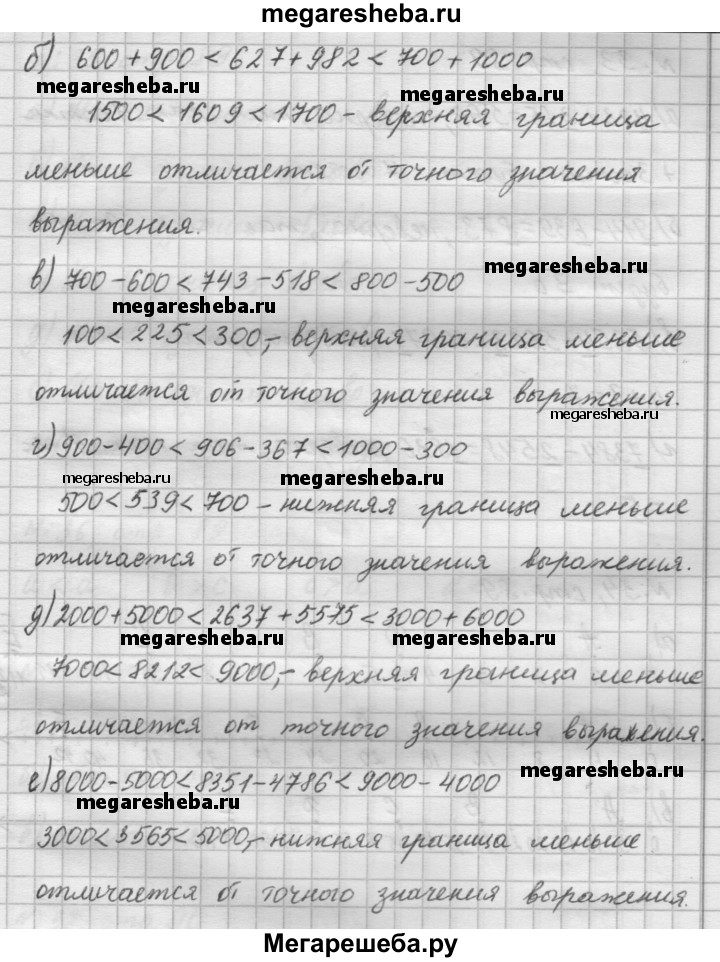 megaresheba.ru
б) 600 + 900 < 627 + 982 < 700 + 1000
megaresheba.ru megaresheba.ru
1500 < 1609 < 1700 - верхняя граница
меньше отличается от точного значения
выражения.
в) 700 - 600 < 743 - 518 < 800 - 500 megaresheba.ru
megaresheba.ru
100 < 225 < 300, - верхняя граница меньше
отличается от точного значения выражения.
megaresheba.ru
г) 900 - 400 < 906 - 367 < 1000 - 300
megaresheba.ru megaresheba.ru
500 < 539 < 700 - нижняя граница меньше
отличается от точного значения выражения.
д) 2000 + 5000 < 2637 + 5575 < 3000 + 6000
megaresheba.ru megaresheba.ru
7000 < 8212 < 9000, - верхняя граница меньше
отличается от точного значения выражения.
е) 8000 - 5000 < 8351 - 4786 < 9000 - 4000 megaresheba.ru
megaresheba.ru
3000 < 3565 < 5000, - нижняя граница меньше
отличается от точного значения выражения.
Мегарешеба.ру